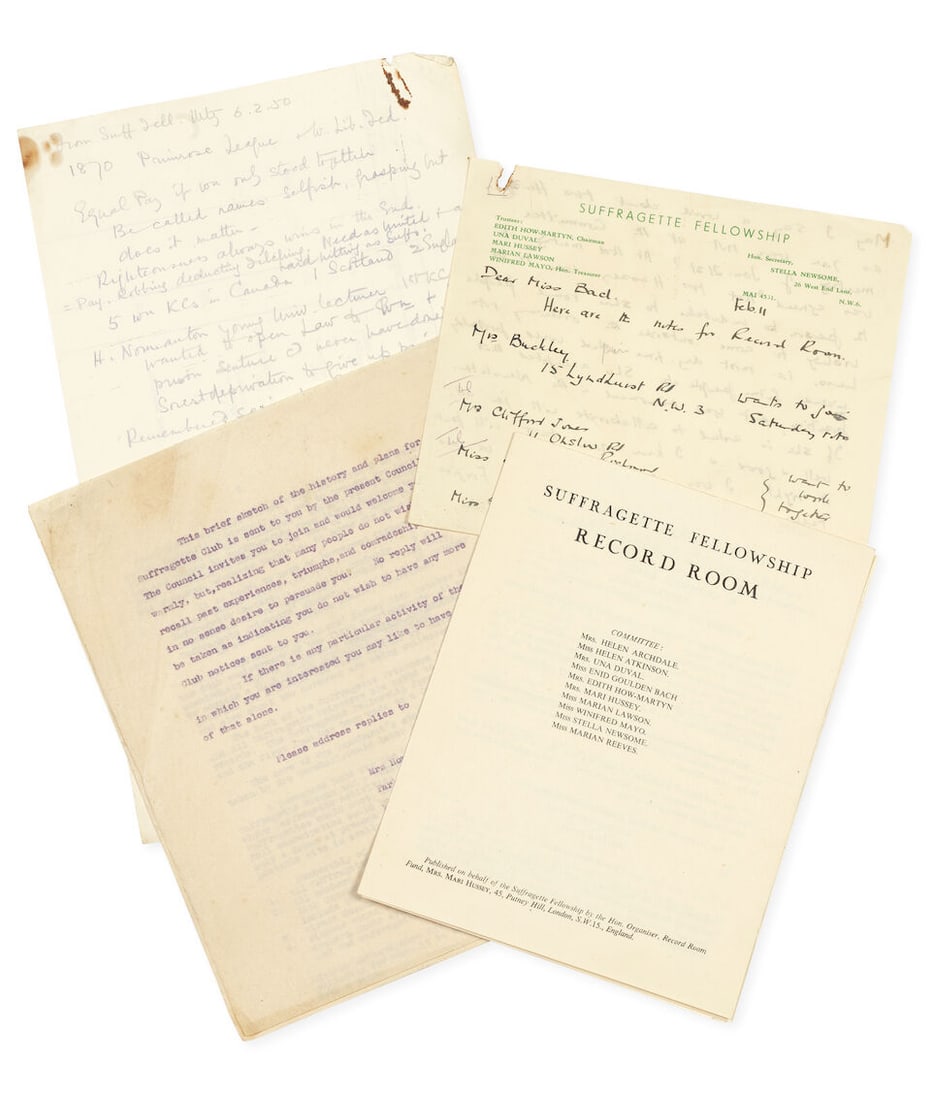 from Suff Fell. Mtg 6.2.50
1870 Primrose League + W. Lib. Fed.
Equal Pay if won only stood together
Be called names selfish, grasping but
does it matter -
Righteousness always wins in the End.
= Pay. Robbing deducting Needs united +
hard hitting as Suffs!
5 won KCs in Canada 1 Scotland 2 England
H. Normanton young Univ. lecturer 1st KC
wanted to open Law to
prison sentence never have done
deprivation to give up
Remembered
SUFFRAGETTE FELLOWSHIP
Trustees:
EDITH HOW-MARTYN, Chairman
UNA DUVAL
MARI HUSSEY
MARIAN LAWSON
WINIFRED MAYO, Hon. Treasurer
Hon. Secretary,
STELLA NEWSOME,
26 West End Lane,
N.W.6.
MAI 4531.
Feb 11
Dear Miss Bach.
Here are the notes for Record Room.
Mrs Buckley
15 Lyndhurst Rd
N.W. 3
wants to join
Saturday
Mrs Clifford Jones
11 Onslow Rd
Richmond
Miss
Miss
want to
work
together
This brief sketch of the history and plans for
Suffragette Club is sent to you by the present Council
The Council invites you to join and would welcome
warmly, but, realizing that many people do not
recall past experiences, triumphs, and comradeship
in no sense desire to persuade you. No reply will
be taken as indicating you do not wish to have any more
Club notices sent to you.
If there is any particular activity of the
in which you are interested you may like to have
of that alone.
Please address replies to
Mrs
SUFFRAGETTE FELLOWSHIP
RECORD ROOM
COMMITTEE:
MRS. HELEN ARCHDALE.
MISS HELEN ATKINSON.
MRS. UNA DUVAL.
MISS ENID GOULDEN BACH
MRS. EDITH HOW-MARTYN
MRS. MARI HUSSEY.
MISS MARIAN LAWSON.
MISS WINIFRED MAYO.
MISS STELLA NEWSOME.
MISS MARIAN REEVES.
Published on behalf of the Suffragette Fellowship by the Hon. Organiser, Record Room
Fund, MRS. MARI HUSSEY, 45, Putney Hill, London, S.W.15., England.